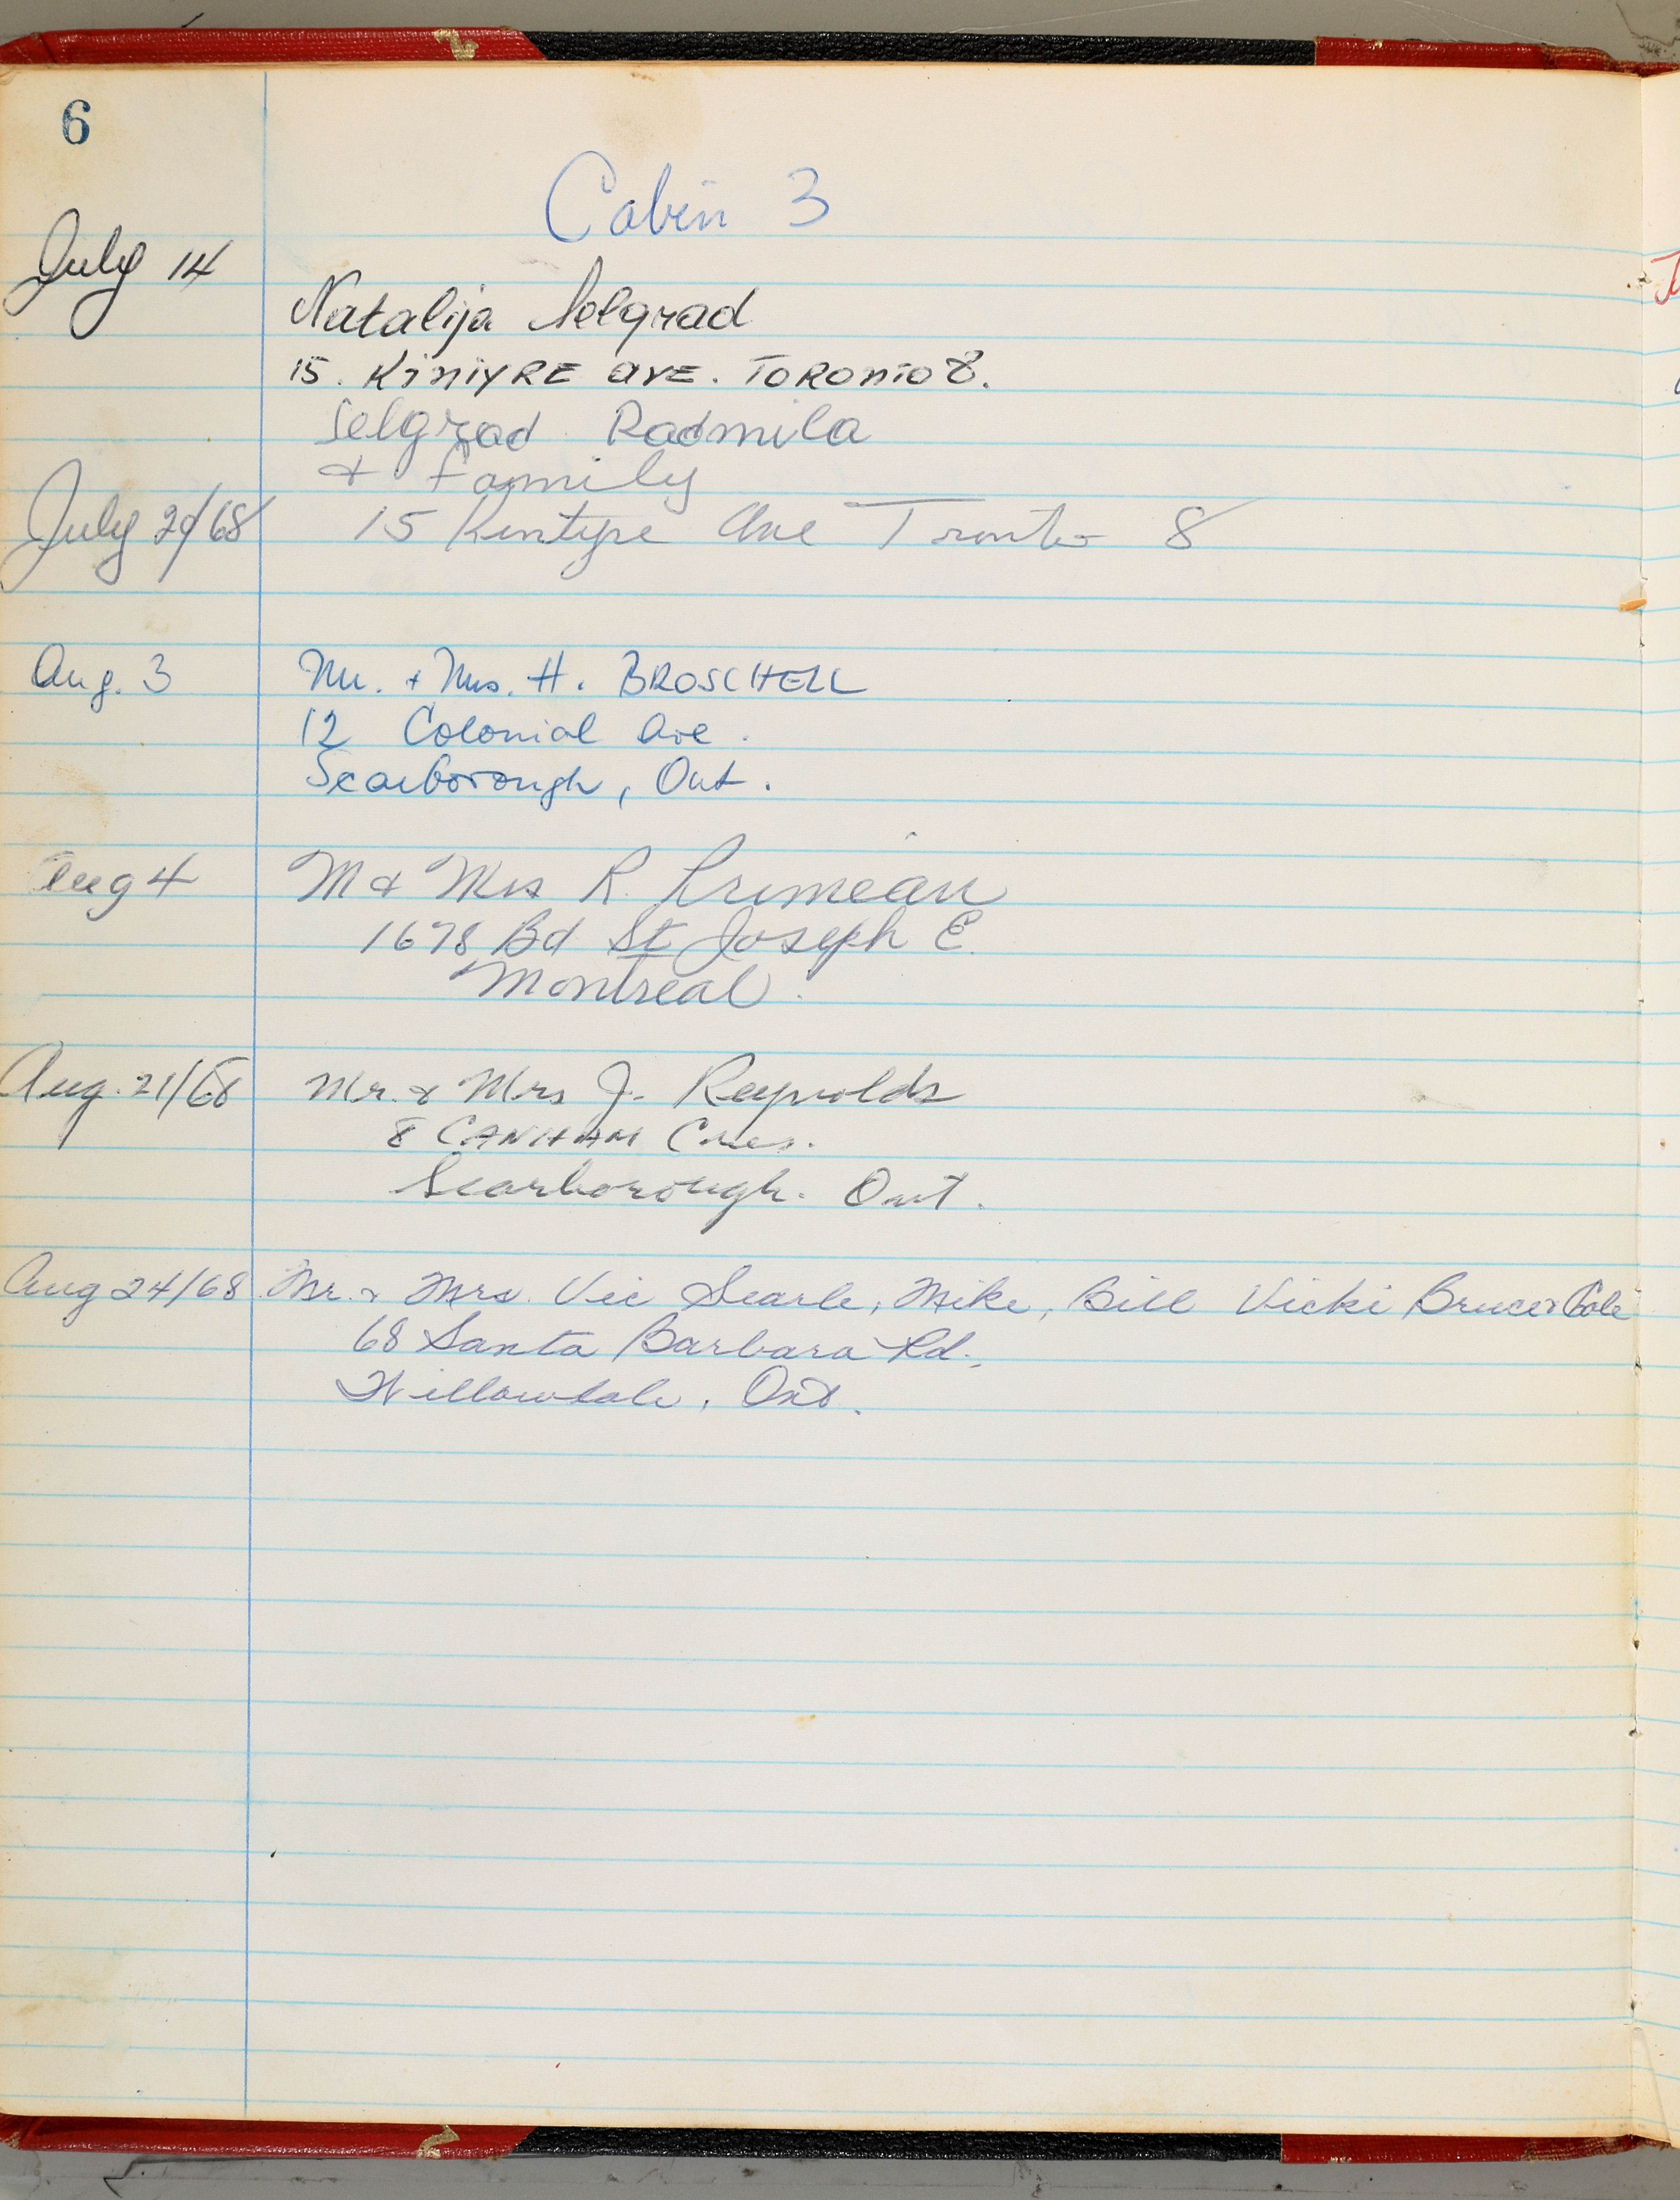 6
Cabin 3
July 14
Natalija Selgrad
15. KINTYRE AVE. TORONTO 8.
Selgrad Radmila
& Family
July 20/68 15 Kintyre Ave Tronto 8
Aug. 3 Mr. + Mrs. H. BROSCHELL
12 Colonial Ave.
Scarborough, Ont.
Aug 4 M & Mrs R. Primeau
1678 Bd St Joseph E.
Montreal.
Aug. 21/68 Mr. & Mrs J. Reynolds
8 CANHAM Cres.
Scarborough. Ont.
Aug 24/68 Mr. & Mrs. Vic Searle, Mike, Bill Vicki Bruce &
68 Santa Barbara Rd.,
Willowdale, Ont.